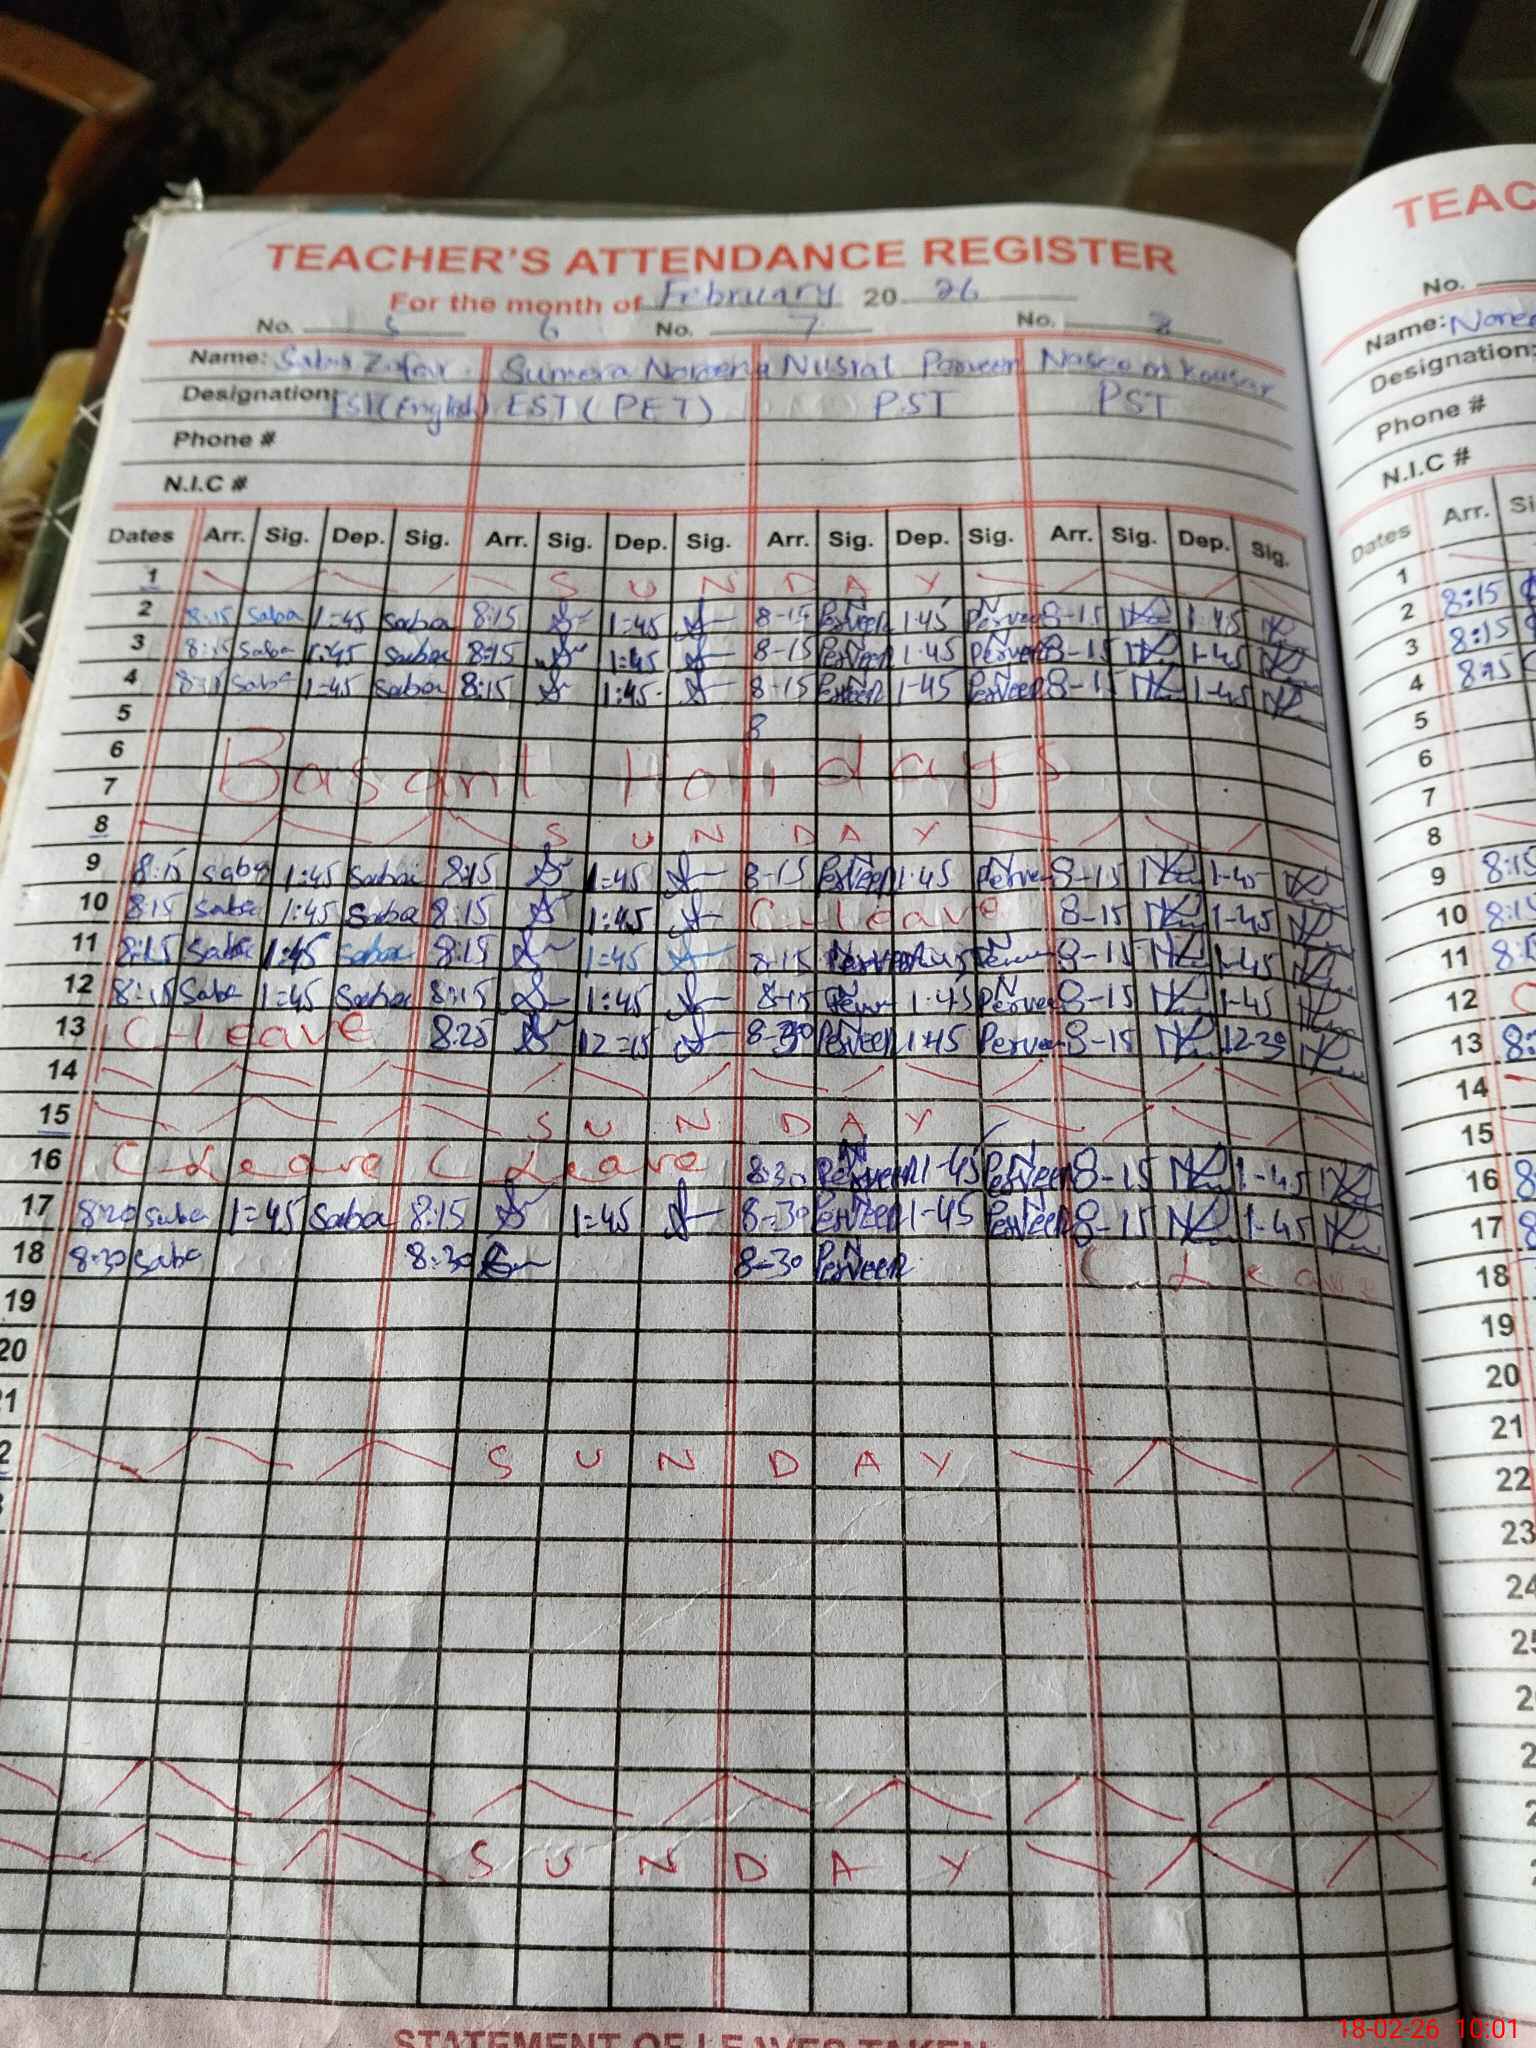 TEACHER'S ATTENDANCE REGISTER
For the month of February 20 26
No. 5 6 No. 7 No. 8
Name: Saba Zafar Sumera Noreen Nusrat Parveen Naseem Kousar
Designation: EST(English) EST(PET) PST PST
Phone #
N.I.C #
Dates Arr. Sig. Dep. Sig. Arr. Sig. Dep. Sig. Arr. Sig. Dep. Sig. Arr. Sig. Dep. Sig.
1 SUNDAY
2 8:15 Saba 1=45 Saba 8:15 1:45 8-15 N Perveen 1-45 N Perveen 8-15 1-45
3 8:15 Saba 1:45 Saba 8:15 1:45 8-15 Perveen 1-45 Perveen 8-15 1-45
4 Saba 1-45 Saba 8:15 1:45 8-15 Perveen 1-45 Perveen 8-15 1-45
5 8
6 Basant Holidays
7
8 SUNDAY
9 8:15 Saba 1:45 Saba 8:15 1=45 8-15 Perveen 1-45 Perveen 8-15 1-45
10 8:15 Saba 1:45 Saba 8:15 1:45 C-Leave 8-15 1-45
11 8:15 Saba 1:45 Saba 8:15 1=45 8-15 Perveen N 8-15 1-45
12 8:15 Saba 1=45 Saba 8:15 1:45 8-15 1-45 N Perveen 8-15 1-45
13 C-Leave 8:25 12=15 Perveen Perveen 8-15 12-30
14
15 SUNDAY
16 C-Leave C Leave 8:30 N Perveen 1-45 N Perveen 8-15 1-45
17 8:20 Saba 1=45 Saba 8:15 1=45 8-30 Perveen 1-45 Perveen 8-15 1-45
18 8:30 Saba 8:30 8-30 N Perveen C-Leave
19
20
21
2 SUNDAY
SUNDAY
STATEMENT OF LEAVES TAKEN
TEAC
No.
Name: Noree
Designation:
Phone #
N.I.C #
Dates Arr. Si
1
2 8:15
3 8:15
4 8:15
5
6
7
8
9 8:15
10 8:15
11
12 C
13
14
15
16 8
17 8
18
19
20
21
22
23
24
25
18-02-26 10:01